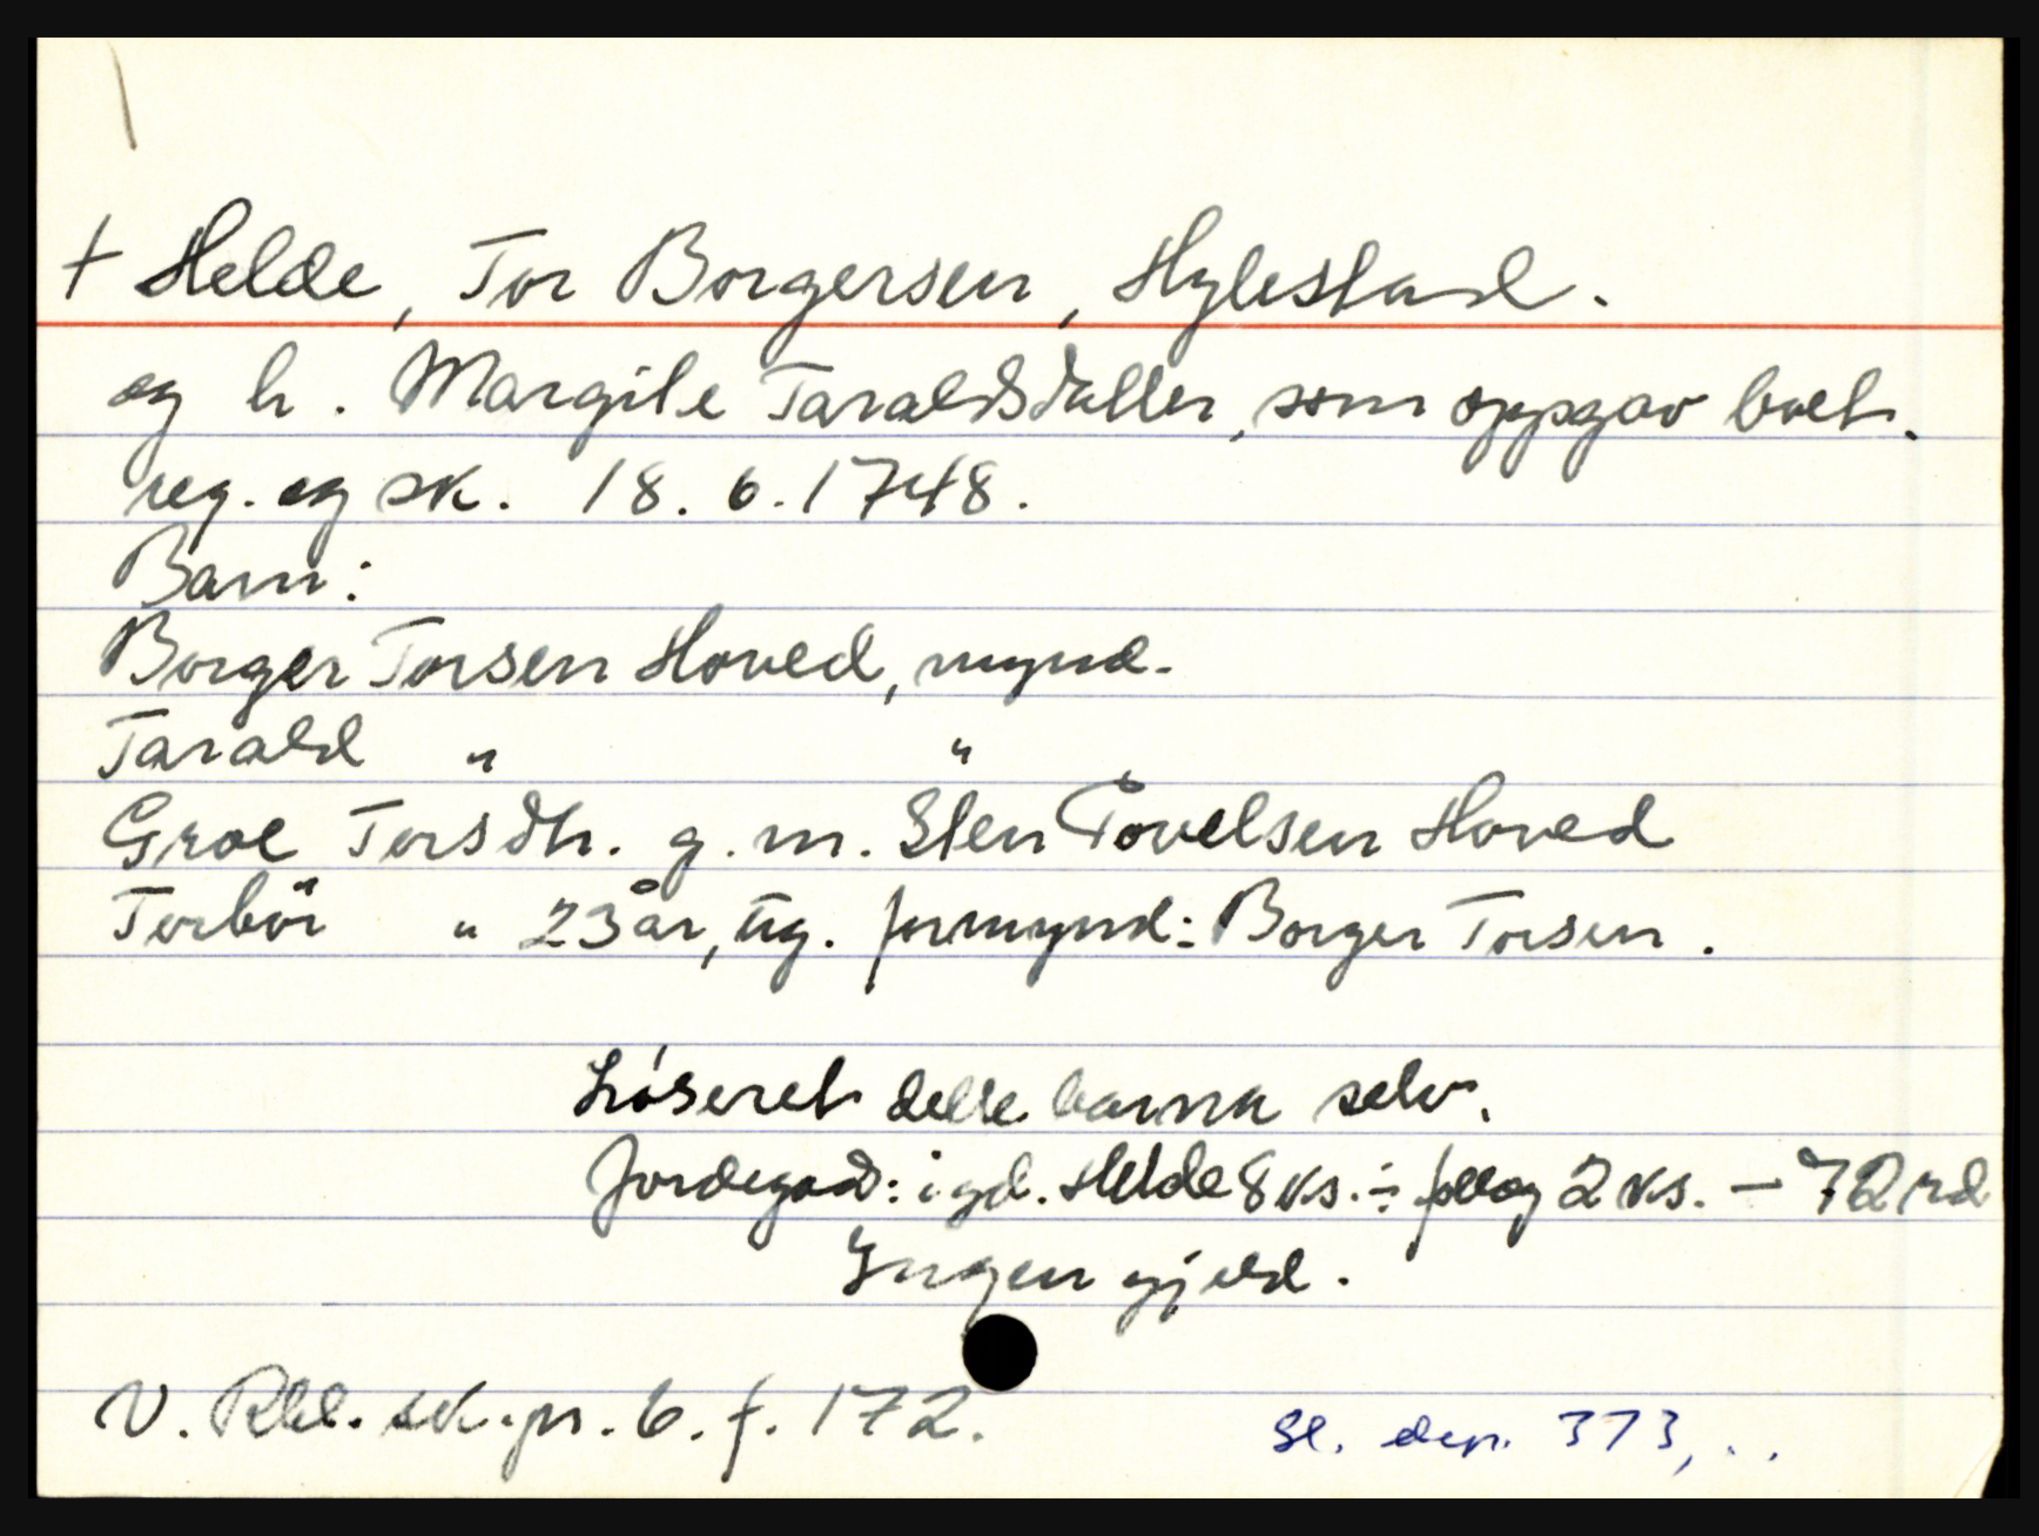 + Helde, Tor Borgersen, Hylestad.
og h. Margite Taraldsdatter, som oppgav boet.
reg. og sk. 18.6.1748.
Barn:
Borger Torsen Hoved, mynd.
Tarald " "
Groe Torsdtr. g.m. Sten Tovelsen Hoved
Torbör " 23 år, ug. formynd: Borger Torsen.
Lösöret delte barna selv.
Jordegods: i gd. Helde 8 ks. ÷ 2 ks. - 72 rd
Ingen gjeld.
V. Rbl. sk.pr. 6. f. 172.
Sl. dep. 373, . .